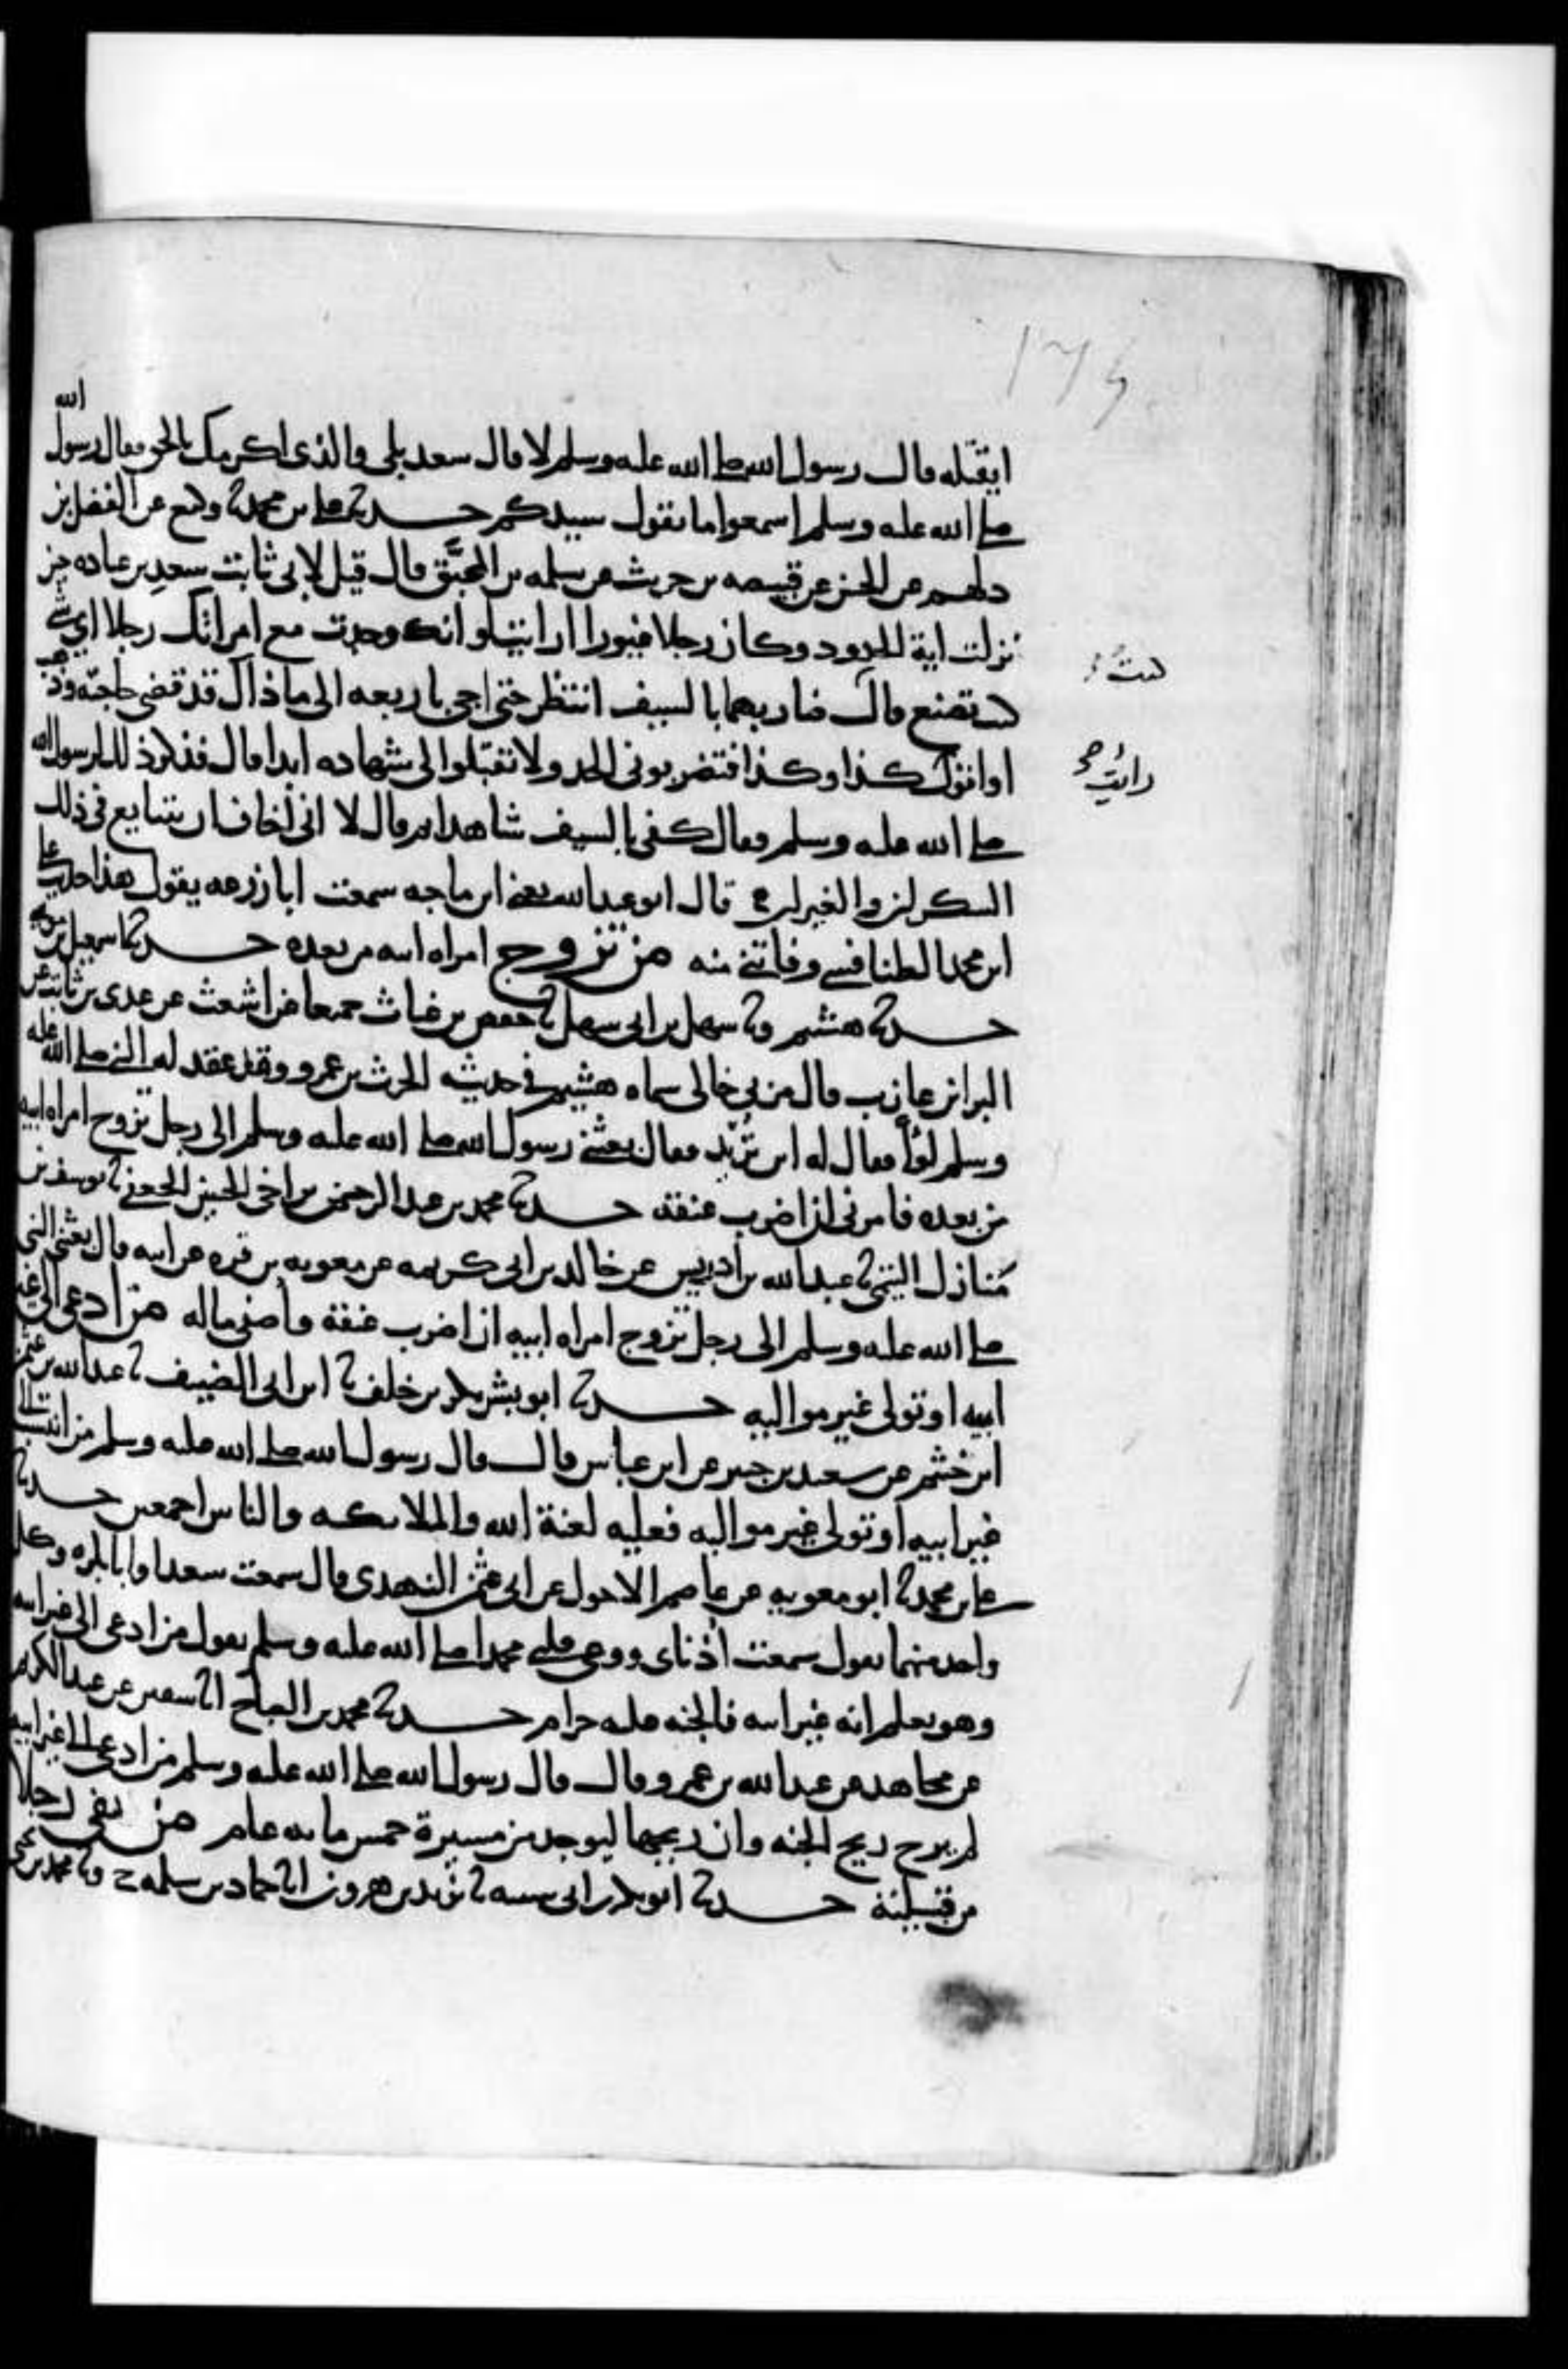 ١٧٤
ايقتله قال رسول الله صلى الله عليه وسلم لا قال سعد بلى والذي اكرمك بالحق فقال رسول الله
صلى الله عليه وسلم اسمعوا ما يقول سيدكم حدثنا علي بن محمد ثنا وكيع عن الفضل بن
دلهم عن الحسن عن قبيصه بن حريث عن سلمه بن المحبَّق قال قيل لابي ثابت سعد بن عباده حين
نزلت اية الحدود وكان رجلا غيورا ارايت لو انك وجدت مع امراتك رجلا اي شي
كنت تصنع قال ضاربهما بالسيف انتظر حتى اجي باربعه الى ما ذاك قد قضى حاجته وذهب
او اقول كذا وكذا فتضربوني الحد ولا تقبلوا لي شهاده ابدا قال فذكر ذلك لرسول الله
صلى الله عليه وسلم فقال كفى بالسيف شاهدا ثم قال لا اني اخاف ان يتتايع في ذلك
السكران والغيران قال ابو عبد الله يعني ابن ماجه سمعت ابا زرعه يقول هذا حديث علي
ابن محمد الطنافسي وفاتني منه من تزوج امراه ابيه من بعده حدثنا اسمعيل بن موسى
حدثنا هشيم وثنا سهل بن ابي سهل ثنا حفص بن غياث جميعا عن اشعث عن عدي بن ثابت عن
البرا بن عازب قال مر بي خالي سماه هشيم في حديثه الحرث بن عمرو وقد عقد له النبي صلى الله عليه
وسلم لوأ فقال له اين تريد فقال بعثني رسول الله صلى الله عليه وسلم الى رجل تزوج امراه ابيه
من بعده فامرني ان اضرب عنقه حدثنا محمد بن عبد الرحمن بن اخي الحسين الجعفي ثنا يوسف بن
مَنازل التيمي ثنا عبد الله بن ادريس عن خالد بن ابي كريمه عن معويه بن قره عن ابيه قال بعثني النبي
صلى الله عليه وسلم الى رجل تزوج امراه ابيه ان اضرب عنقه واصفي ماله من ادعى الى غير
ابيه او تولى غير مواليه حدثنا ابو بشر بكر بن خلف ثنا ابن ابي الضيف ثنا عبد الله بن عثمن
ابن خثيم عن سعيد بن جبير عن ابن عباس قال قال رسول الله صلى الله عليه وسلم من انتسب الى
غير ابيه او تولى غير مواليه فعليه لعنة الله والملائكه والناس اجمعين حدثنا
علي بن محمد ثنا ابو معويه عن عاصم الاحول عن ابي عثمن النهدي قال سمعت سعدا وابا بكره وكل
واحد منهما يقول سمعت اُذناي ووعى قلبي محمدا صلى الله عليه وسلم يقول من ادعى الى غير ابيه
وهو يعلم انه غير ابيه فالجنه عليه حرام حدثنا محمد بن الصباح انا سفين عن عبد الكريم
عن مجاهد عن عبد الله بن عمرو قال قال رسول الله صلى الله عليه وسلم من ادعى الى غير ابيه
لم يرح ريح الجنه وان ريحها ليوجد من مسيرة خمس مايه عام من نفى رجلا
من قبيلته حدثنا ابو بكر بن ابي شيبه ثنا يزيد بن هرون انا حماد بن سلمه ح وثنا محمد بن يحيى
كنتُ
رايتُ صح